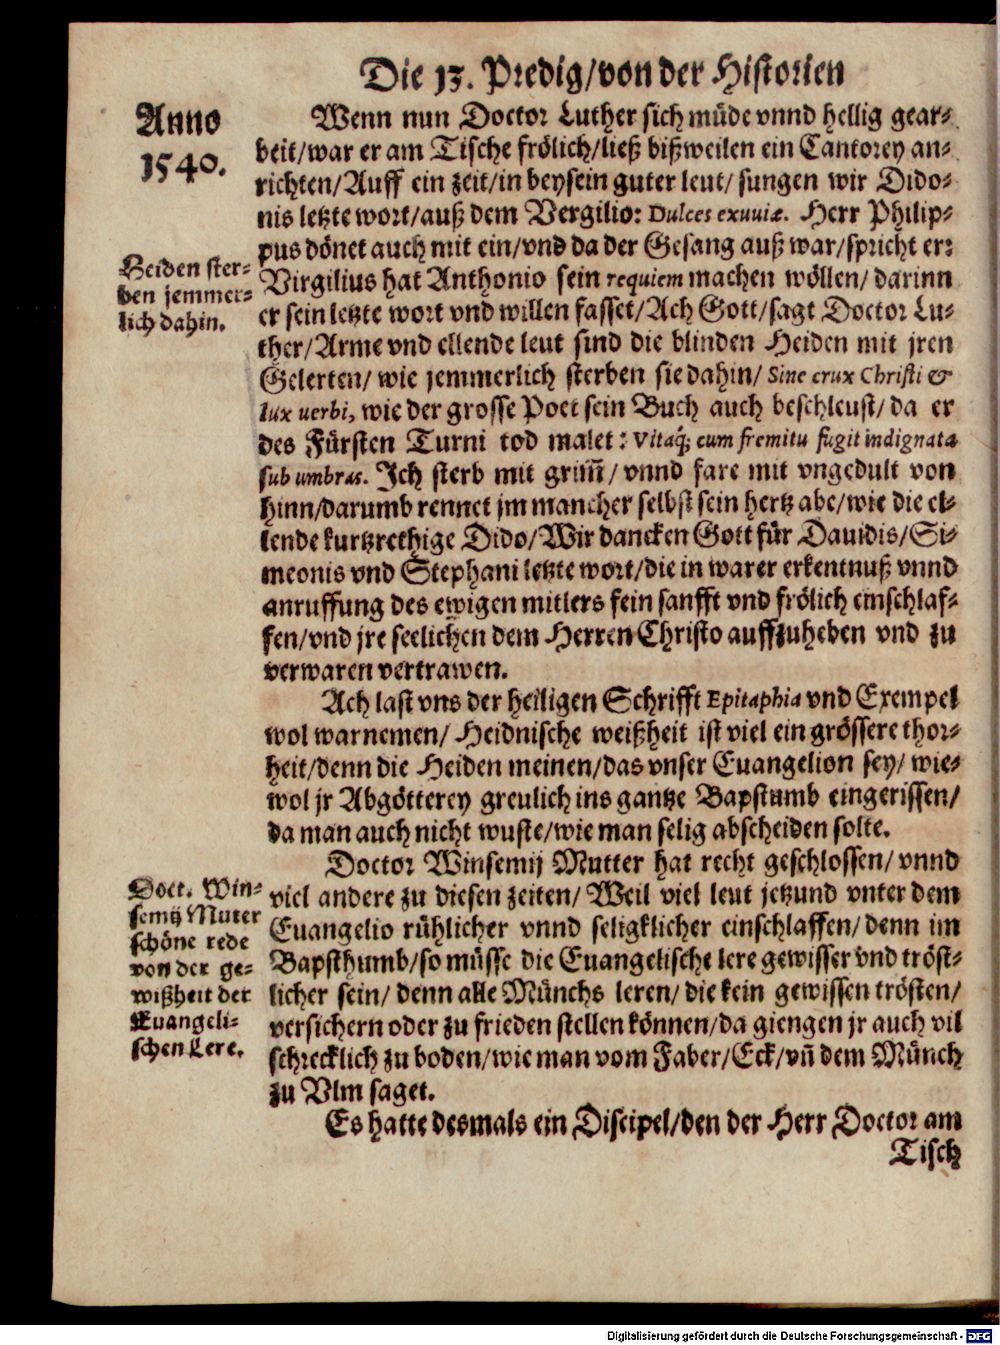 Die 13. Predig/von der Historien
Anno
1540.
Wenn nun Doctor Luther sich müde vnnd hellig gear-
beit/war er am Tische frölich/ließ bißweilen ein Cantorey an-
richten/Auff ein zeit/in beysein guter leut/ sungen wir Dido-
nis letzte wort/auß dem Vergilio: Dulces exuuiæ. Herr Philip-
pus dönet auch mit ein/vnd da der Gesang auß war/spricht er:
Heiden ster-
ben jemmer-
lich dahin.
Virgilius hat Anthonio sein requiem machen wöllen/ darinn
er sein letzte wort vnd willen fasset/Ach Gott/sagt Doctor Lu-
ther/Arme vnd ellende leut sind die blinden Heiden mit jren
Gelerten/ wie jemmerlich sterben sie dahin/ Sine crux Christi &
lux uerbi, wie der grosse Poet sein Buch auch beschleust/ da er
des Fürsten Turni tod malet: Vitaq́; cum fremitu fugit indignata
sub umbras. Ich sterb mit grim̃/ vnnd fare mit vngedult von
hinn/darumb rennet jm mancher selbst sein hertz abe/wie die el-
lende kurtzrethige Dido/Wir dancken Gott für Dauidis/Si-
meonis vnd Stephani letzte wort/die in warer erkentnuß vnnd
anruffung des ewigen mitlers fein sanfft vnd frölich einschlaf-
fen/vnd jre seelichen dem Herren Christo auffzuheben vnd zu
verwaren vertrawen.
Ach last vns der heiligen Schrifft Epitaphia vnd Exempel
wol warnemen/ Heidnische weißheit ist viel ein grössere thor-
heit/denn die Heiden meinen/das vnser Euangelion sey/ wie-
wol jr Abgötterey greulich ins gantze Bapstumb eingerissen/
da man auch nicht wuste/wie man selig abscheiden solte.
Doctor Winsemij Mutter hat recht geschlossen/ vnnd
Doct. Win-
semij Muter
schöne rede
von der ge-
wißheit der
Euangeli-
schen Lere.
viel andere zu diesen zeiten/ Weil viel leut jetzund vnter dem
Euangelio rühlicher vnnd seligklicher einschlaffen/ denn im
Bapsthumb/so müsse die Euangelische lere gewisser vnd tröst-
licher sein/ denn alle Münchs leren/ die kein gewissen trösten/
versichern oder zu frieden stellen können/da giengen jr auch vil
schrecklich zu boden/wie man vom Faber/Eck/vñ dem Münch
zu Vlm saget.
Es hatte desmals ein Discipel/den der Herr Doctor am
Tisch
Digitalisierung gefördert durch die Deutsche Forschungsgemeinschaft - DFG